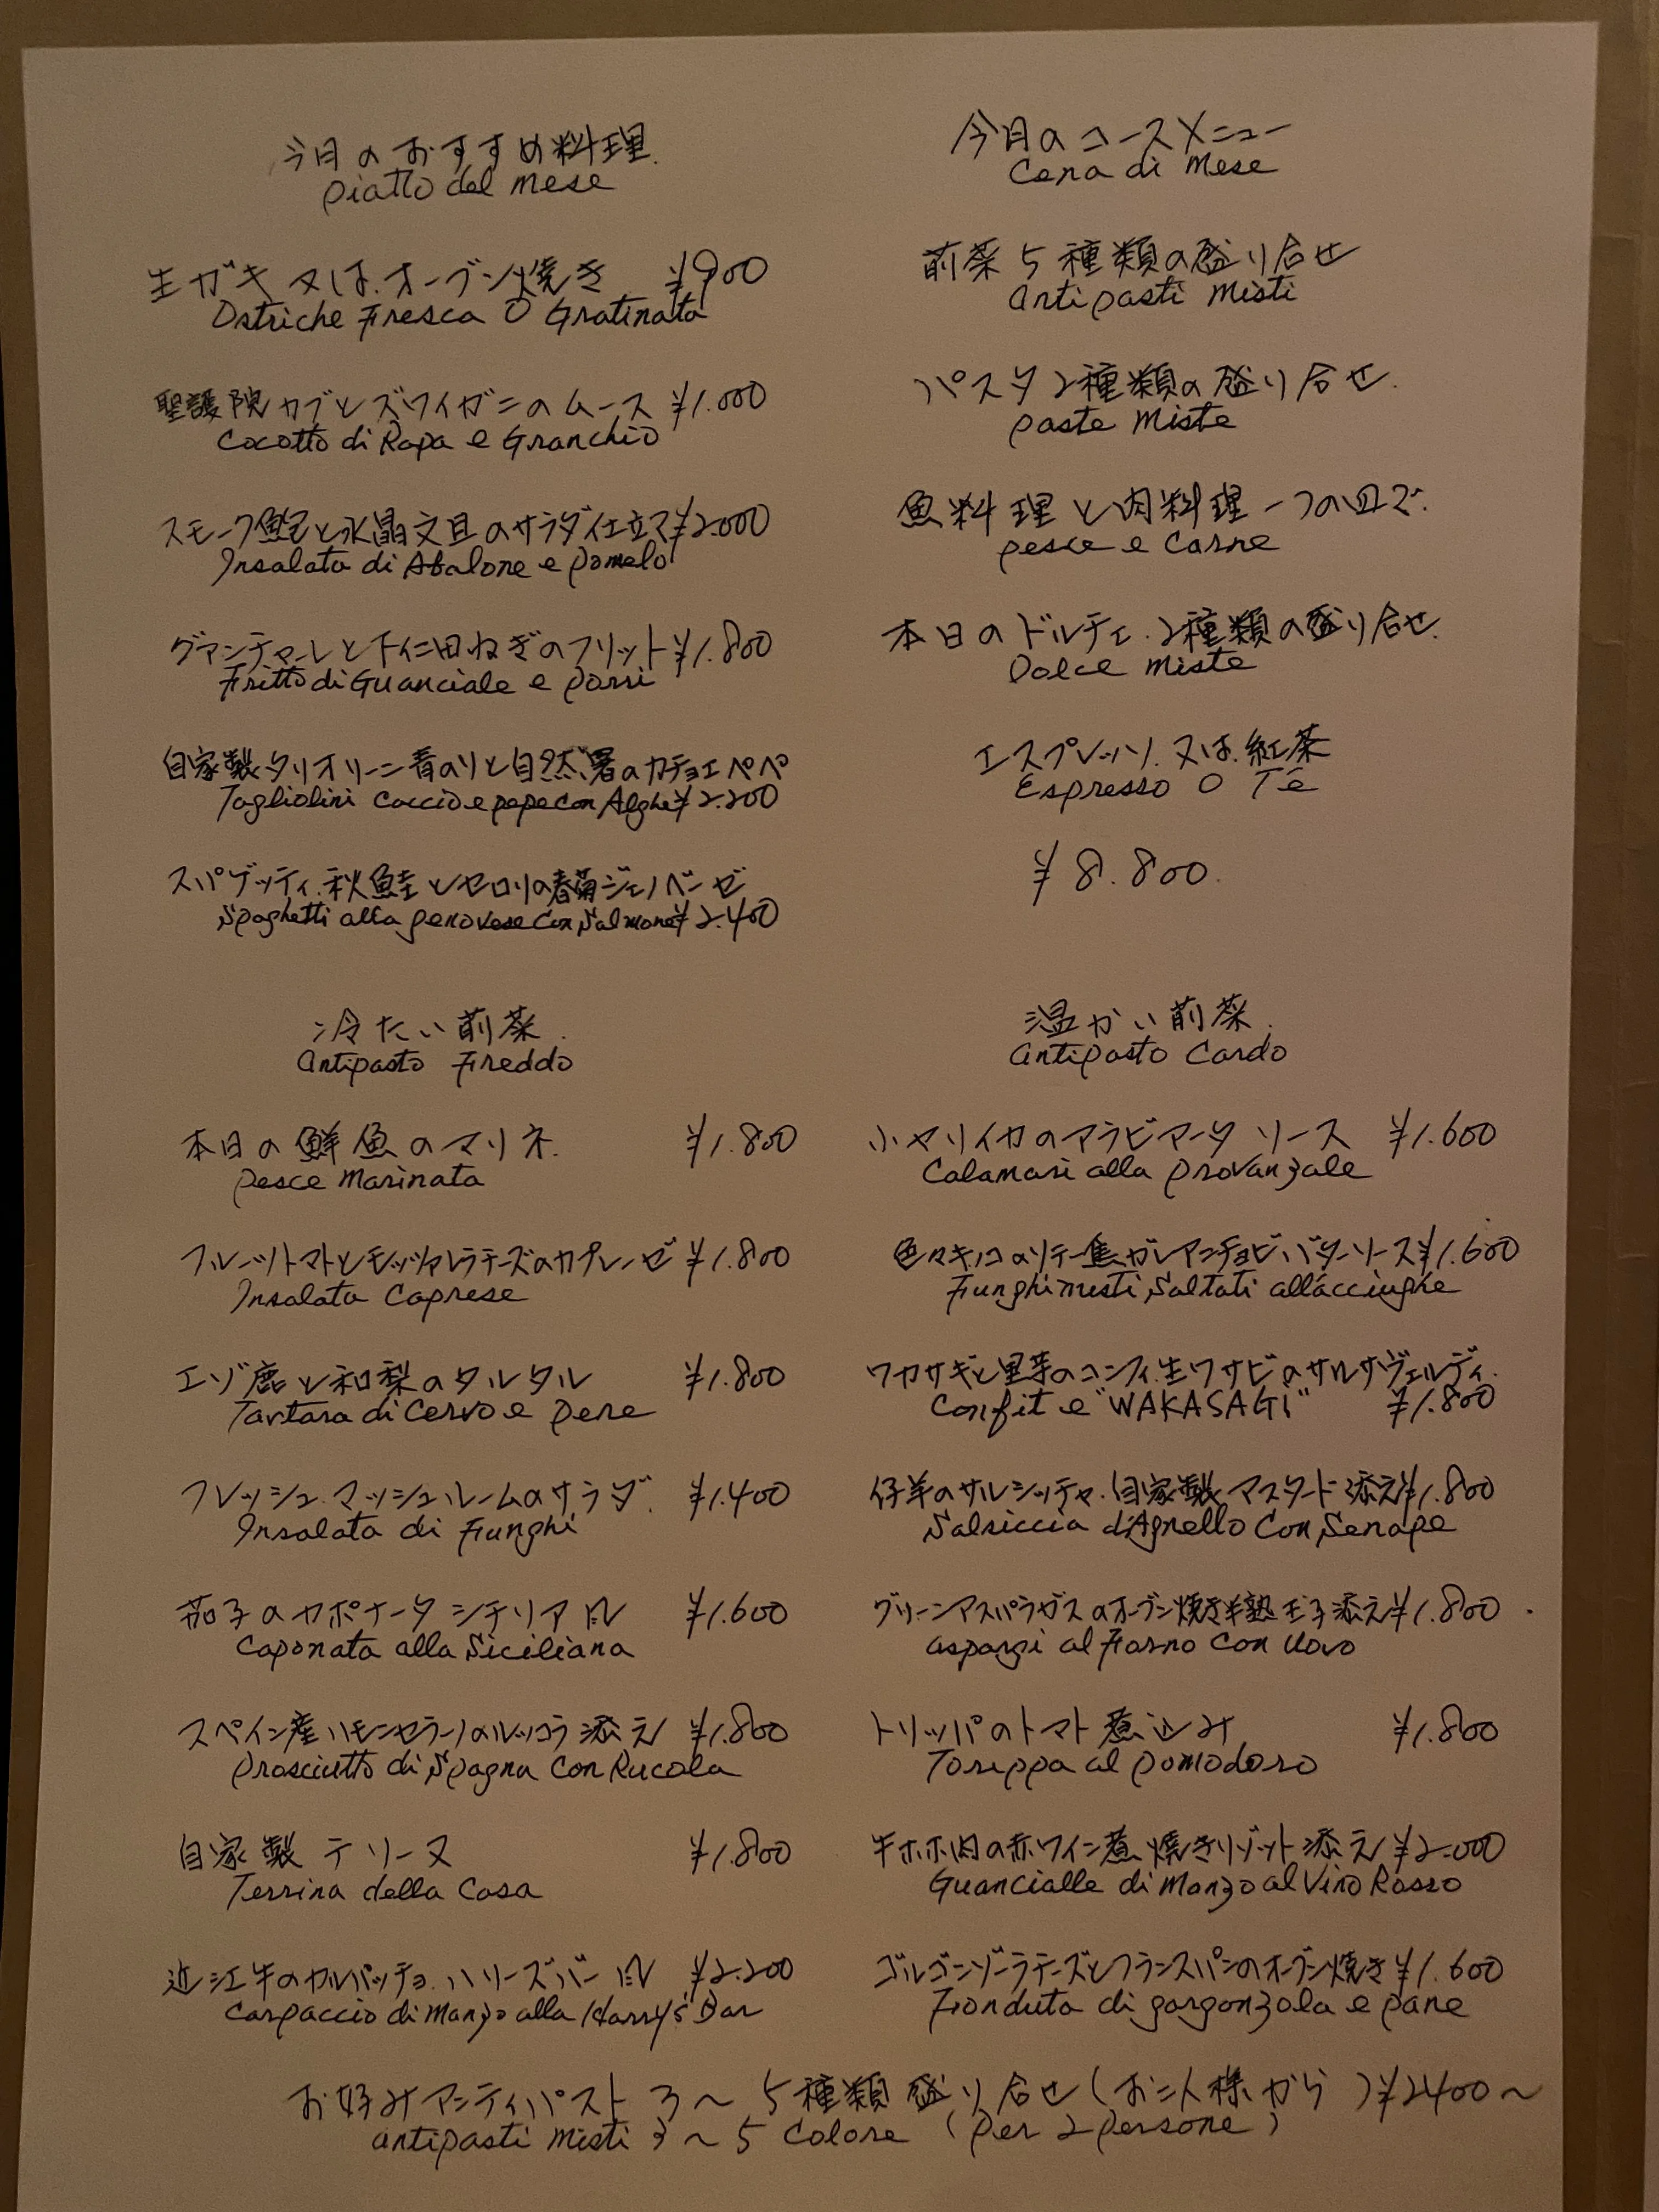 今月のおすすめ料理
piatto del mese
生ガキ 又は オーブン焼き ¥900
Ostriche Fresca O Gratinata
聖護院カブとズワイガニのムース ¥1.000
Cocotto di Rapa e Granchio
スモーク鮑と水晶文旦のサラダ仕立て ¥2.000
Insalata di Abalone e pomelo
グアンチャーレと下仁田ねぎのフリット ¥1.800
Fritto di Guanciale e porri
自家製タリオリーニ青のりと自然薯のカチョエペペ
Tagliolini Caccio e pepe con Alghe ¥2.200
スパゲッティ.秋鮭とセロリの春菊ジェノベーゼ
Spaghetti alla genovese Con Salmone ¥2.400
今月のコースメニュー
Cena di Mese
前菜5種類の盛り合せ
Antipasti Misti
パスタ2種類の盛り合せ.
paste Miste
魚料理と肉料理一つの皿で.
pesce e Carne
本日のドルチェ.2種類の盛り合せ.
Dolce Miste
エスプレッソ.又は.紅茶
Espresso O Tē
¥8.800.
冷たい前菜.
Antipasto Freddo
本日の鮮魚のマリネ. ¥1.800
pesce Marinata
フルーツトマトとモッツァレラチーズのカプレーゼ ¥1.800
Insalata Caprese
エゾ鹿と和梨のタルタル ¥1.800
Tartara di Cervo e pere
フレッシュ.マッシュルームのサラダ. ¥1.400
Insalata di Funghi
茄子のカポナータ シチリア風 ¥1.600
Caponata alla Siciliana
スペイン産ハモンセラーノのルッコラ添え ¥1.800
prosciutto di Spagna Con Rucola
自家製テリーヌ ¥1.800
Terrina della Casa
近江牛のカルパッチョ.ハリーズバー風 ¥2.200
Carpaccio di Manzo alla Harry's Bar
温かい前菜.
Antipasto Cardo
小ヤリイカのアラビアータ ソース ¥1.600
Calamari alla provanzale
色々キノコのソテー焦がしアンチョビバターソース ¥1.600
Funghi misti Saltati all'acciughe
ワカサギと里芋のコンフィ.生ワサビのサルサヴェルディ.
Confit e "WAKASAGI" ¥1.800
仔羊のサルシッチャ.自家製マスタード添え ¥1.800
Salsiccia d'Agnello Con Senape
グリーンアスパラガスのオーブン焼き半熟玉子添え ¥1.800
aspargi al Forno Con Uovo
トリッパのトマト煮込み ¥1.800
Toreppa al pomodoro
牛ホホ肉の赤ワイン煮 焼きリゾット添え ¥2.000
Guancialle di Manzo al Vino Rosso
ゴルゴンゾーラチーズとフランスパンのオーブン焼き ¥1.600
Fonduta di gorgonzola e pane
お好みアンティパスト 3〜5種類盛り合せ(お二人様から)¥2400〜
antipasti misti 3〜5 Colore (per 2 persone)